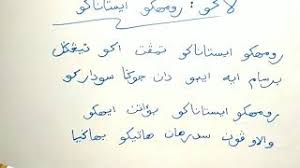 لاݢو : رومهکو ايستاناکو
رومهکو ايستاناکو تمڤت اکو تيڠݢل
برسام ايه ايبو دان جوݢا سوداراکو
رومهکو ايستاناکو بواتن ايهکو
والاوڤون سدرهان هاتيکو بهاݢيا